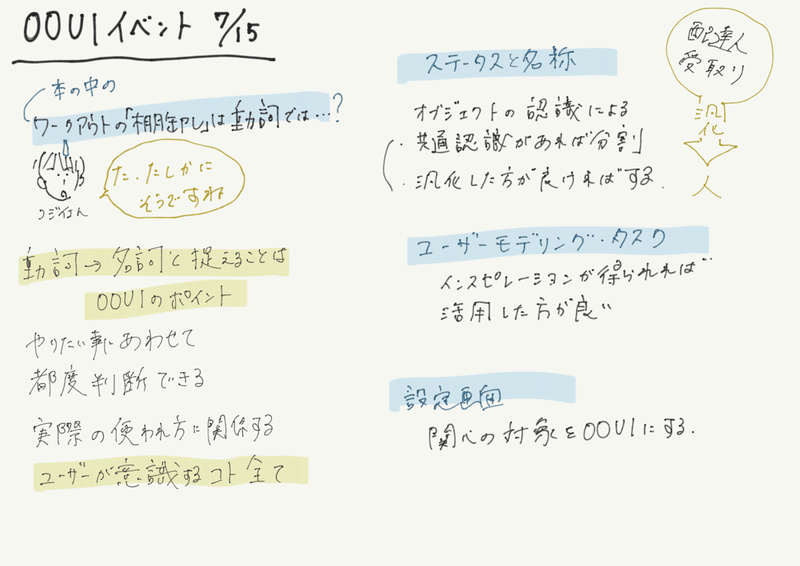 OOUIイベント 7/15
本の中の
ワークアウトの「棚卸し」は動詞では…?
た、たしかに
そうですね
動詞→名詞と捉えることは
OOUIのポイント
やりたい事にあわせて
都度判断できる
実際の使われ方に関係する
ユーザーが意識するコト全て
ステータスと名称
オブジェクトの認識による
・共通認識があれば分割
・汎化した方が良ければする.
配達人
受取り
汎化
人
ユーザーモデリング・タスク
インスピレーションが得られれば
活用した方が良い
設定画面
関心の対象をOOUIにする.